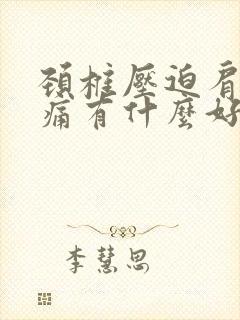 頚椎壓迫肩
痛有什麼好
李慧思